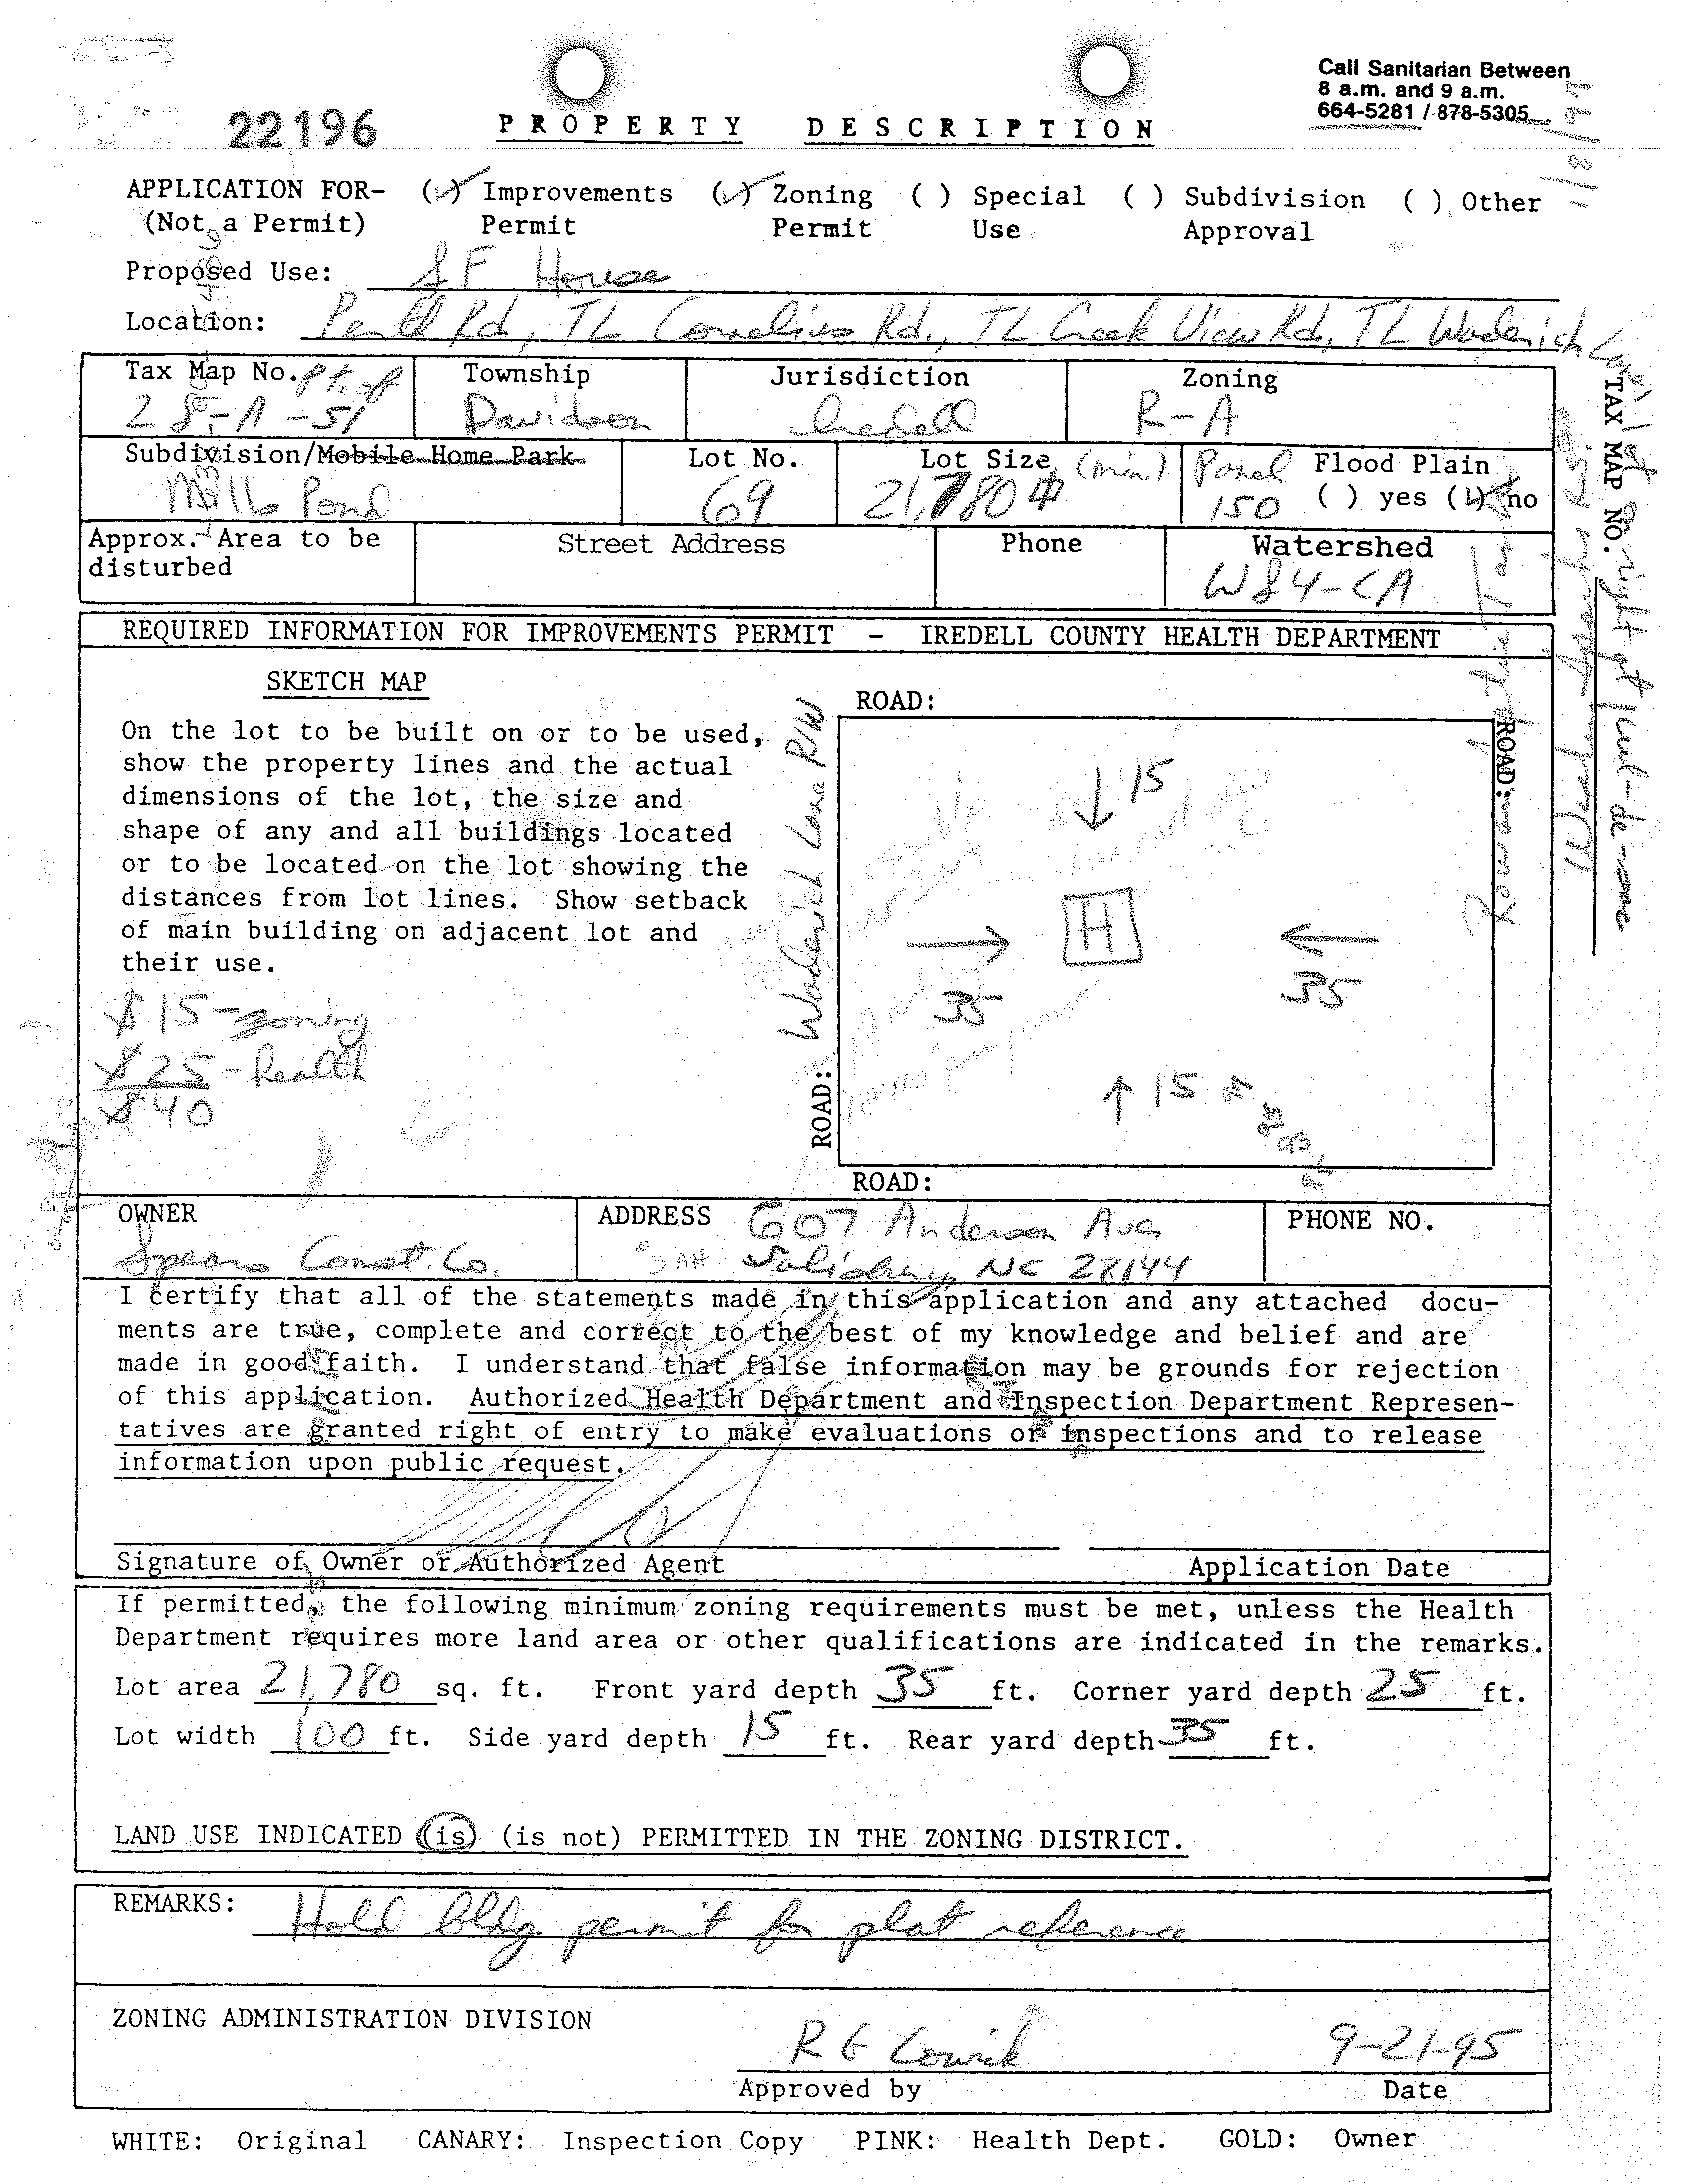 Call Sanitarian Between
8 a.m. and 9 a.m.
664-5281 / 878-5305
22196
PROPERTY DESCRIPTION
APPLICATION FOR- (✓) Improvements (✓) Zoning ( ) Special ( ) Subdivision ( ) Other
(Not a Permit) Permit Permit Use Approval
Proposed Use: SF House
Location: Rd, TL Cornelius Rd., TL Creek View Rd, TL
Tax Map No. Pt. of Township Jurisdiction Zoning
28-A-51 Davidson Iredell R-A
Subdivision/Mobile Home Park Lot No. Lot Size (min) Panel Flood Plain
Mills Pond 69 21,780 150 ( ) yes (✓) no
Approx. Area to be Street Address Phone Watershed
disturbed WS4-CA
TAX MAP NO.
REQUIRED INFORMATION FOR IMPROVEMENTS PERMIT - IREDELL COUNTY HEALTH DEPARTMENT
SKETCH MAP
On the lot to be built on or to be used,
show the property lines and the actual
dimensions of the lot, the size and
shape of any and all buildings located
or to be located on the lot showing the
distances from lot lines. Show setback
of main building on adjacent lot and
their use.
$15-zoning
$25-Health
$40
ROAD:
ROAD: Lane R/W
↓ 15
→ 35
H
← 35
↑ 15
ROAD:
ROAD:
OWNER ADDRESS 607 Anderson Ave PHONE NO.
Spears Const. Co. Salisbury NC 28144
I certify that all of the statements made in this application and any attached docu-
ments are true, complete and correct to the best of my knowledge and belief and are
made in good faith. I understand that false information may be grounds for rejection
of this application. Authorized Health Department and Inspection Department Represen-
tatives are granted right of entry to make evaluations or inspections and to release
information upon public request.
Signature of Owner or Authorized Agent Application Date
If permitted, the following minimum zoning requirements must be met, unless the Health
Department requires more land area or other qualifications are indicated in the remarks.
Lot area 21,780 sq. ft. Front yard depth 35 ft. Corner yard depth 25 ft.
Lot width 100 ft. Side yard depth 15 ft. Rear yard depth 35 ft.
LAND USE INDICATED (is) (is not) PERMITTED IN THE ZONING DISTRICT.
REMARKS: Hold bldg permit for plat reference
ZONING ADMINISTRATION DIVISION
R G 9-21-95
Approved by Date
WHITE: Original CANARY: Inspection Copy PINK: Health Dept. GOLD: Owner